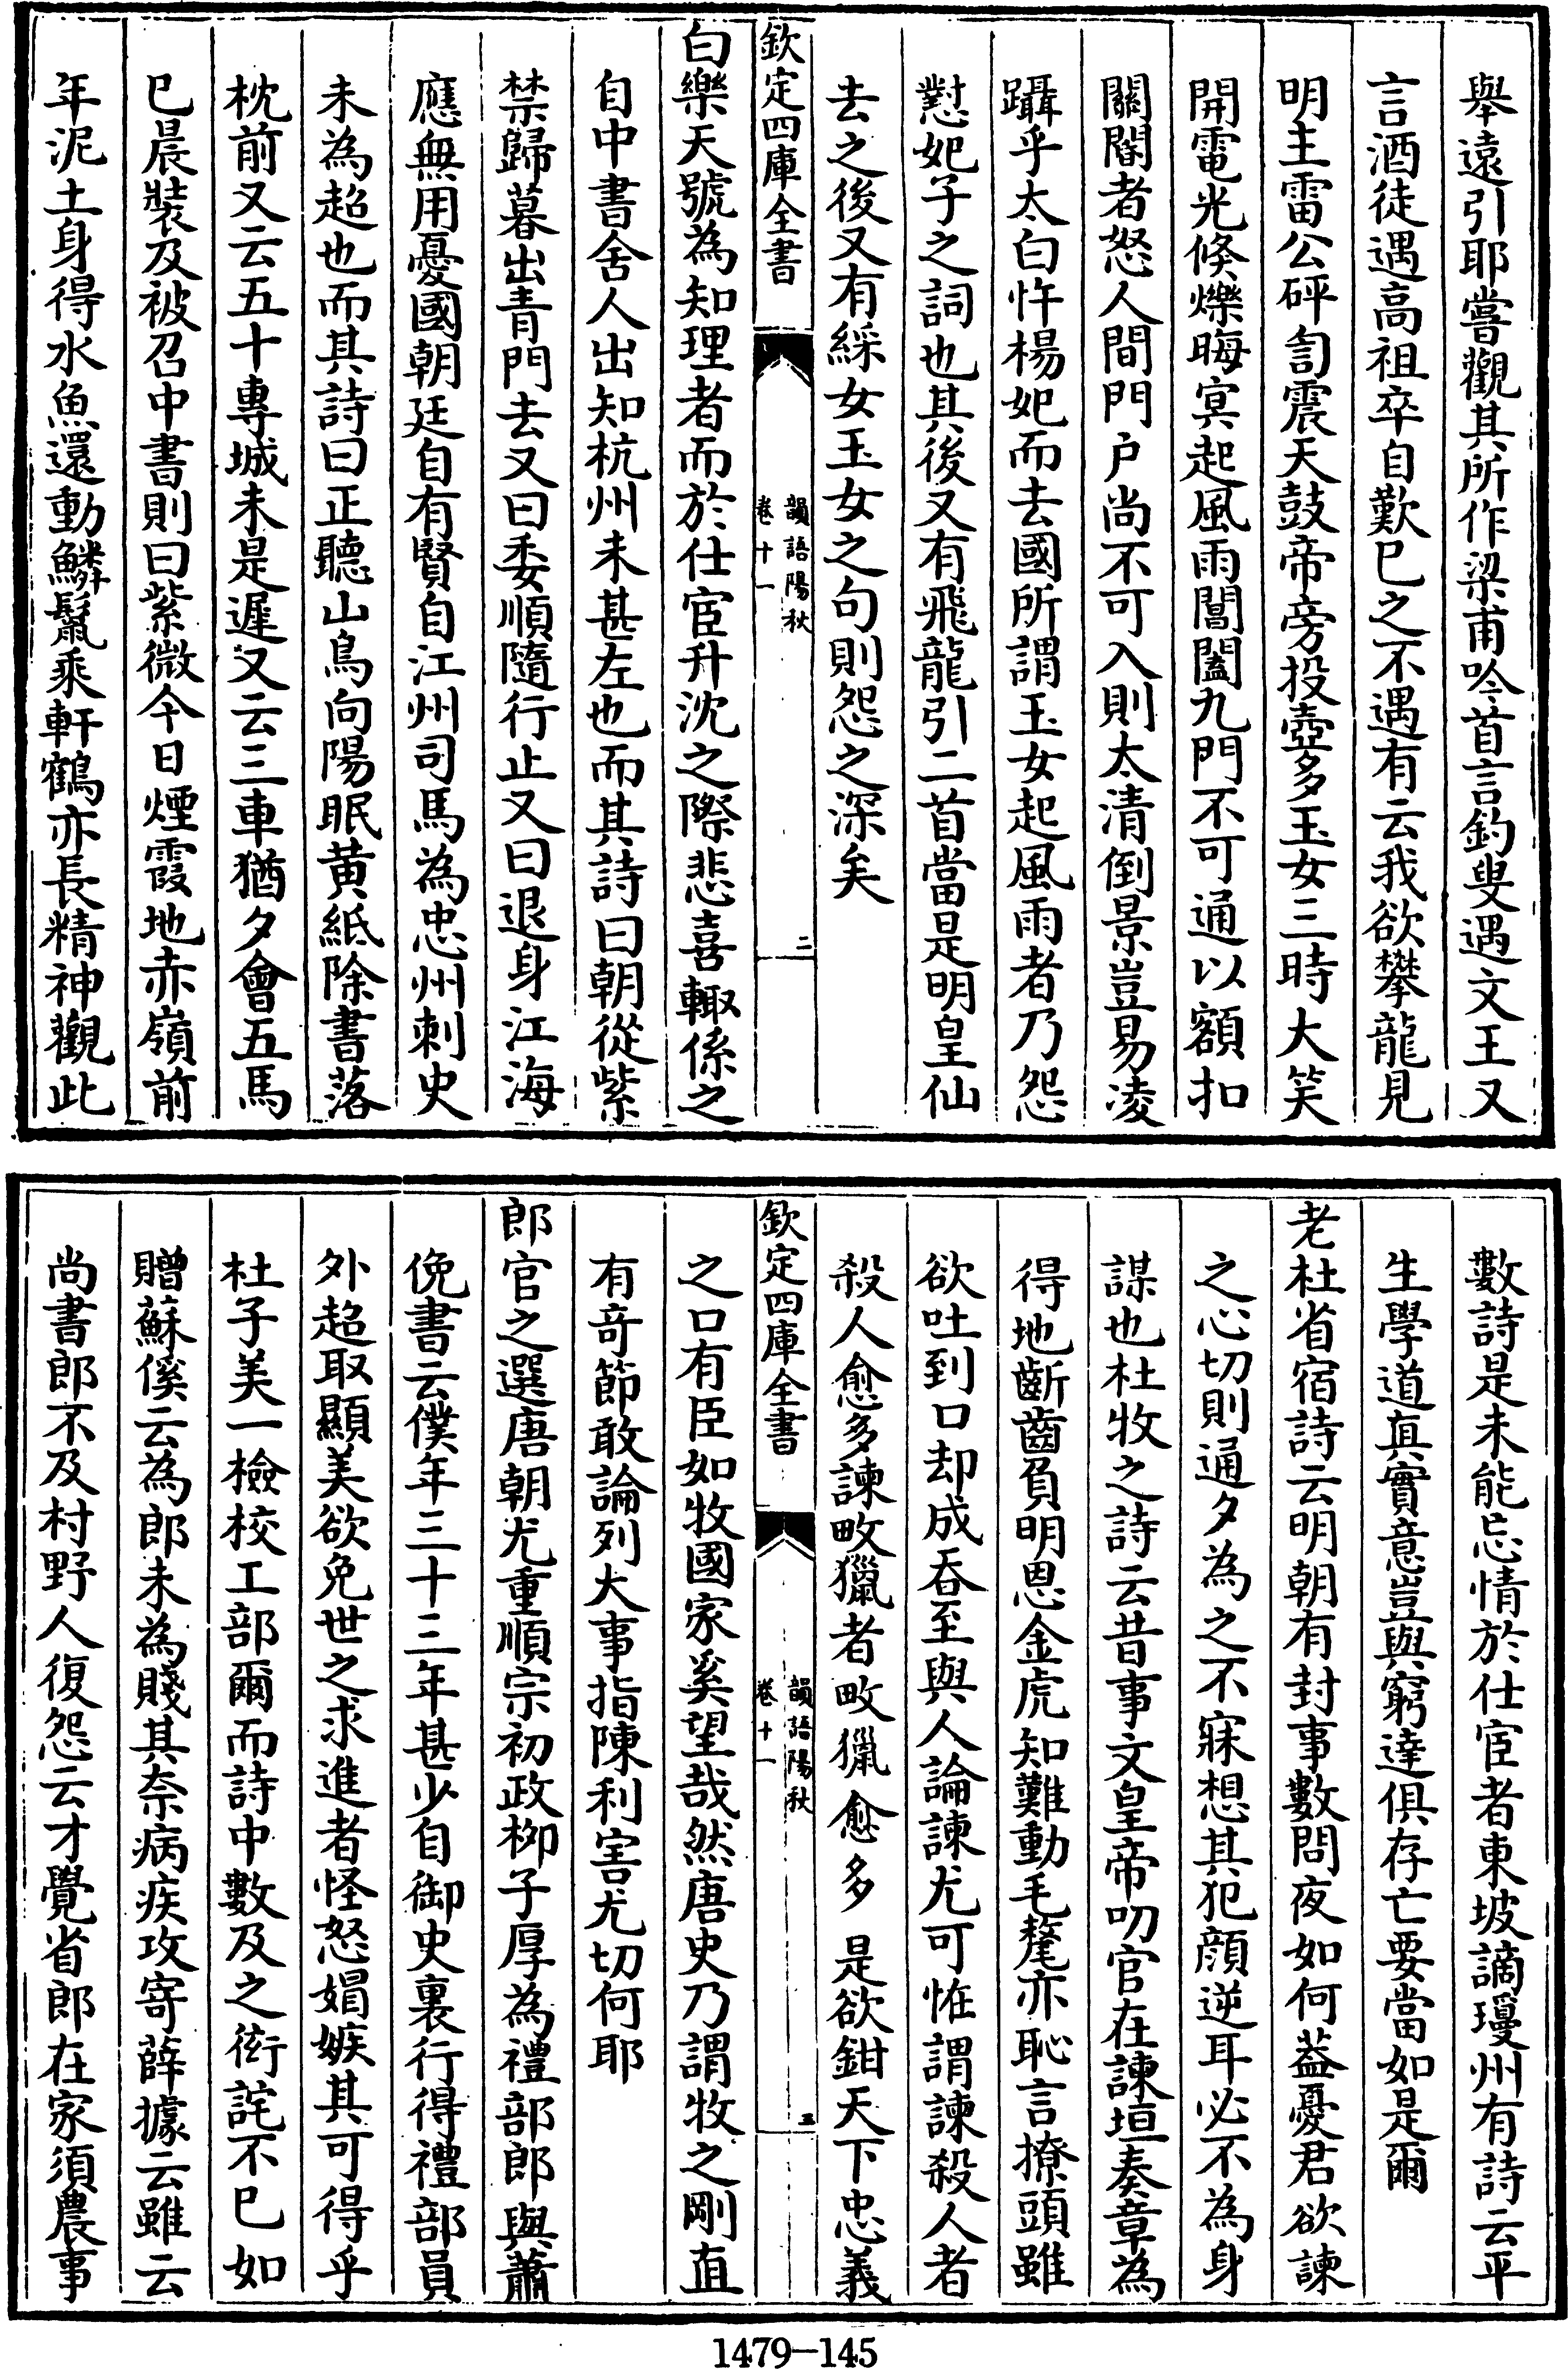 舉遠引耶嘗觀其所作梁甫吟首言釣叟遇文王又
言酒徒遇高祖卒自歎已之不遇有云我欲攀龍見
明主雷公砰訇震天鼓帝旁投壺多玉女三時大笑
開電光倐爍晦冥起風雨閶闔九門不可通以額扣
關閽者怒人間門户尚不可入則太清倒景豈易凌
躡乎太白忤楊妃而去國所謂玉女起風雨者乃怨
懟妃子之詞也其後又有飛龍引二首當是明皇仙
去之後又有綵女玉女之句則怨之深矣
欽定四庫全書
韻語陽秋
卷十一
二
白樂天號為知理者而於仕宦升沈之際悲喜輙係之
自中書舍人出知杭州未甚左也而其詩曰朝從紫
禁歸暮出青門去又曰委順隨行止又曰退身江海
應無用憂國朝廷自有賢自江州司馬為忠州刺史
未為超也而其詩曰正聽山鳥向陽眠黄紙除書落
枕前又云五十專城未是遲又云三車猶夕會五馬
已晨裝及被召中書則曰紫微今日煙霞地赤嶺前
年泥土身得水魚還動鱗鬣乘軒鶴亦長精神觀此
數詩是未能忘情於仕宦者東坡謫瓊州有詩云平
生學道真實意豈與窮達俱存亡要當如是爾
老杜省宿詩云明朝有封事數問夜如何葢憂君欲諫
之心切則通夕為之不寐想其犯顔逆耳必不為身
謀也杜牧之詩云昔事文皇帝叨官在諫垣奏章為
得地齗齒負明恩金虎知難動毛氂亦恥言撩頭雖
欲吐到口却成吞至與人論諫尤可怪謂諫殺人者
殺人愈多諫畋獵者畋獵愈多是欲鉗天下忠義
欽定四庫全書
韻語陽秋
卷十一
三
之口有臣如牧國家奚望哉然唐史乃謂牧之剛直
有竒節敢論列大事指陳利害尤切何耶
郎官之選唐朝尤重順宗初政栁子厚為禮部郎與蕭
俛書云僕年三十三年甚少自御史裏行得禮部員
外超取顯美欲免世之求進者怪怒媢嫉其可得乎
杜子美一檢校工部爾而詩中數及之衒詫不已如
贈蘇徯云為郎未為賤其奈病疾攻寄薛據云雖云
尚書郎不及村野人復怨云才覺省郎在家須農事
1479-145